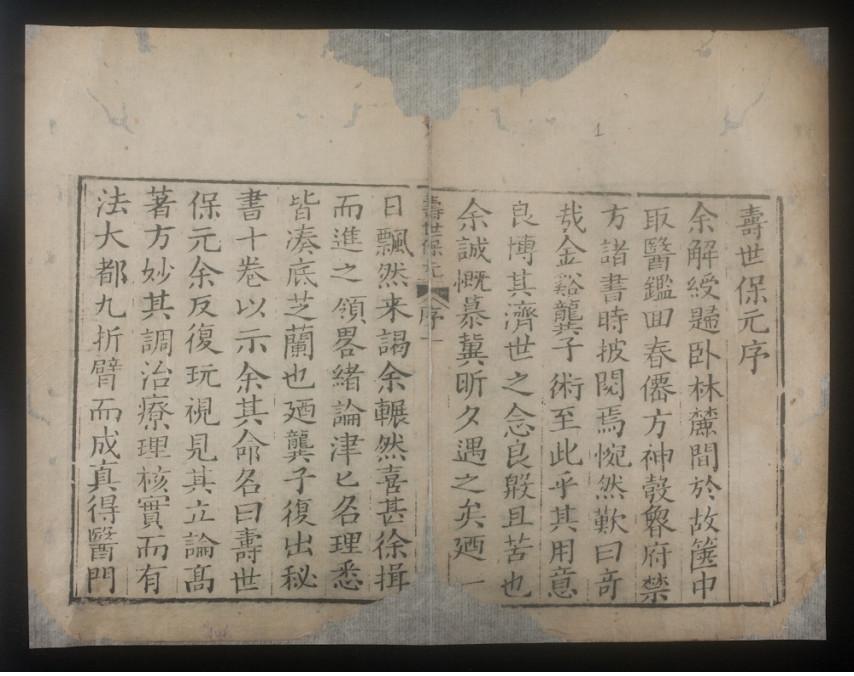 壽世保元序
余解綬歸臥林麓間於故篋中
取醫鑑回春僊方神彀魯府禁
方諸書時披閱焉惋然歎曰奇
哉金谿龔子術至此乎其用意
良博其濟世之念良殷且苦也
余誠慨慕冀昕夕遇之矣廼一
壽世保元 序 一
日飄然来謁余輾然喜甚徐揖
而進之領畧緒論津匕名理悉
皆凑底芝蘭也廼龔子復出秘
書十卷以示余其命名曰壽世
保元余反復玩視見其立論髙
著方妙其調治療理核實而有
法大都九折臂而成真得醫門
1